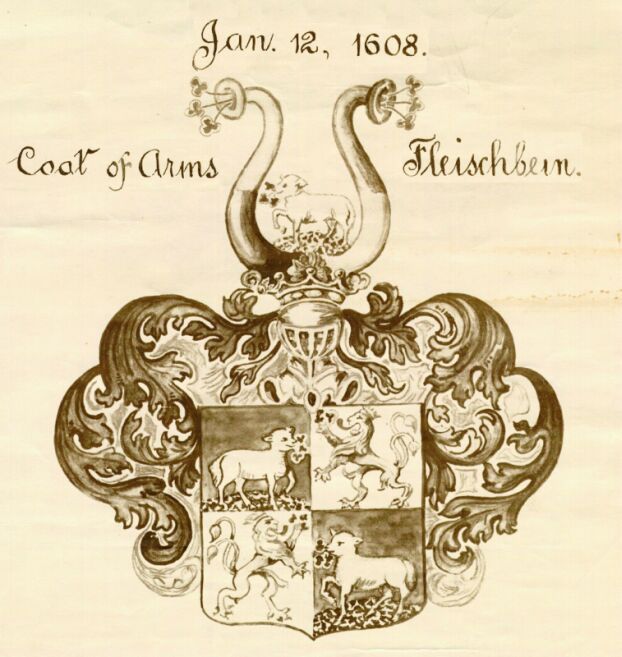 Jan. 12, 1608.
Coat of Arms Fleischbein.